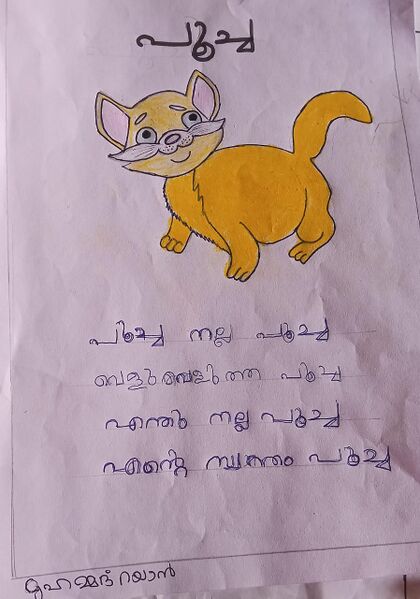 പൂച്ച
പൂച്ച നല്ല പൂച്ച
വെളുവെളുത്ത പൂച്ച
എന്തു നല്ല പൂച്ച
എന്റെ സ്വന്തം പൂച്ച
മുഹമ്മദ് റയാൻ